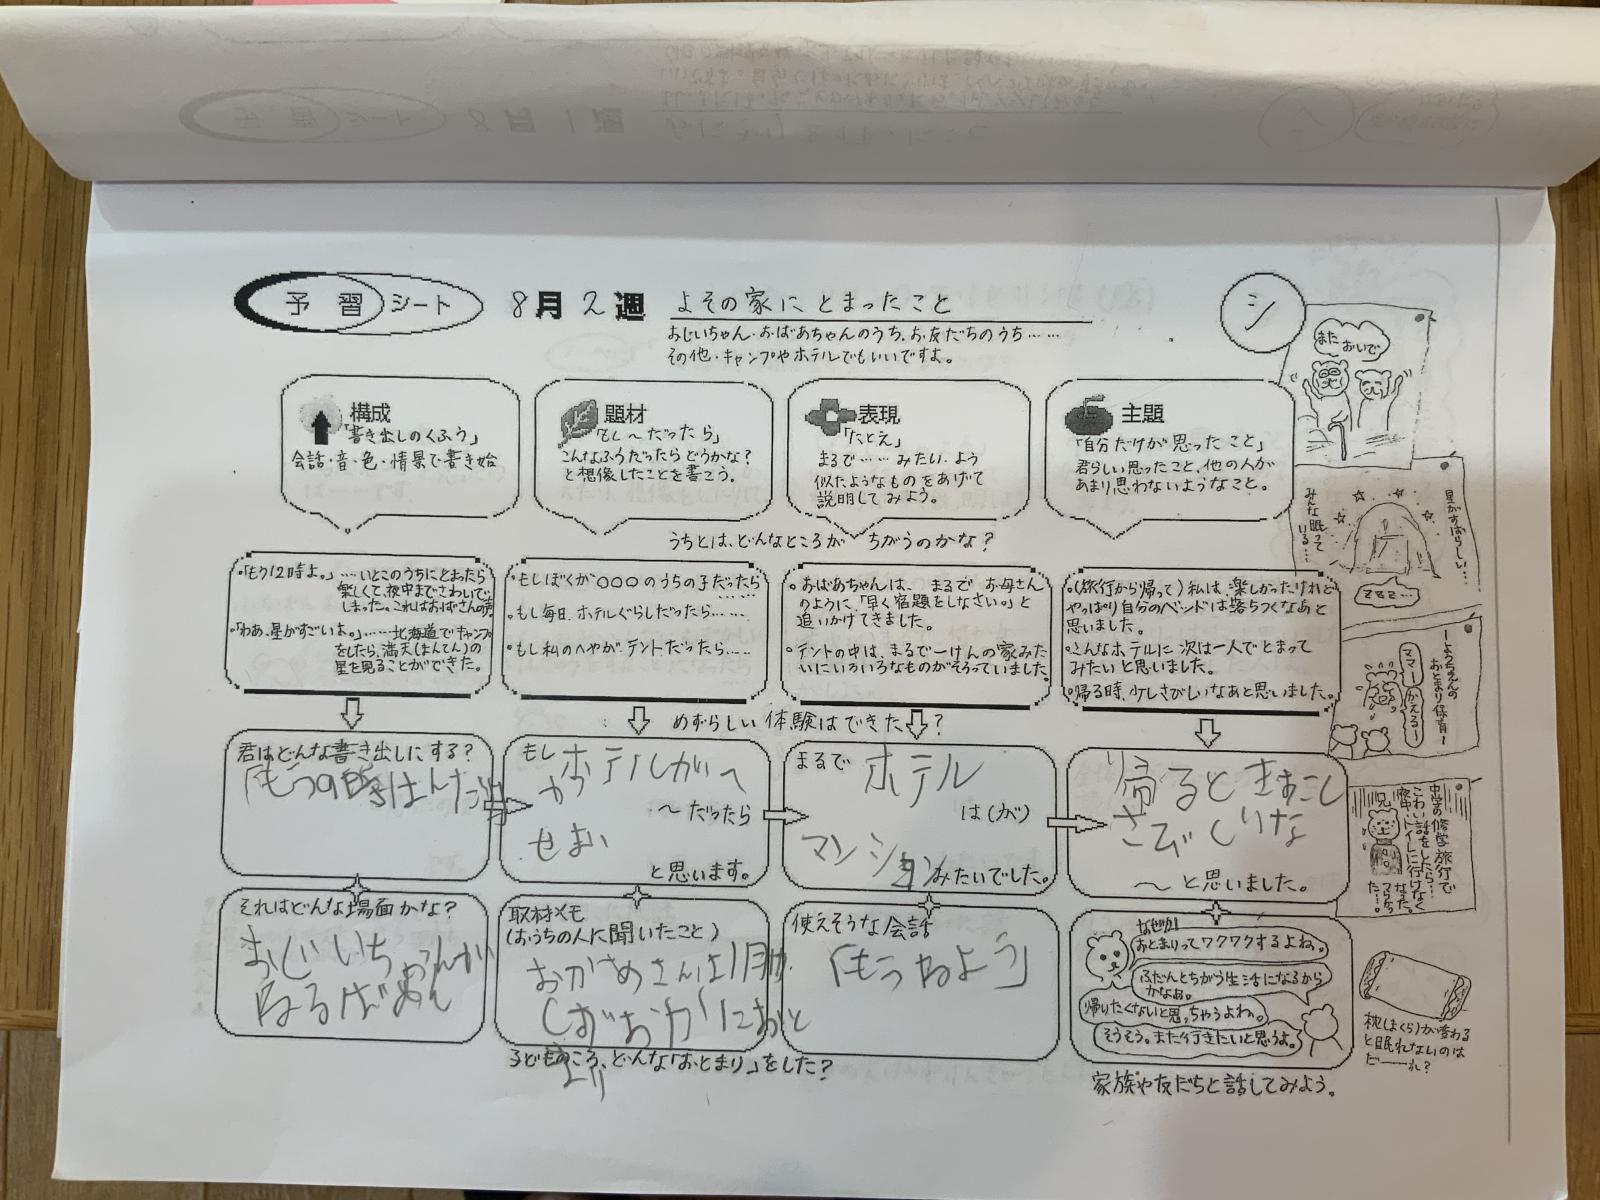 予習シート 8月2週 よその家にとまったこと
おじいちゃん・おばあちゃんのうち、お友だちのうち……
その他・キャンプやホテルでもいいですよ。
シ
構成
「書き出しのくふう」
会話・音・色・情景で書き始
題材
「もし〜だったら」
こんなふうだったらどうかな?
と想像したことを書こう。
表現
「たとえ」
まるで……みたい、よう
似たようなものをあげて
説明してみよう。
主題
「自分だけが思ったこと」
君らしい思ったこと、他の人が
あまり思わないようなこと。
うちとは、どんなところが ちがうのかな?
・「もう12時よ。」……いとこのうちにとまったら
楽しくて、夜中までさわいで
しまった。これはおばさんの声。
・「わあ、星がすごいよ。」……北海道でキャンプ
をしたら、満天(まんてん)の
星を見ることができた。
・もしぼくが○○○のうちの子だったら
……
・もし毎日、ホテルぐらしだったら……
・もし私のへやが、テントだったら……
・おばあちゃんは、まるでお母さん
のように、「早く宿題をしなさい。」と
追いかけてきました。
・テントの中は、まるで一けんの家みた
いにいろいろなものがそろっていました。
・(旅行から帰って)私は、楽しかったけれど
やっぱり自分のベッドは落ちつくなあと
思いました。
・こんなホテルに次は一人でとまって
みたいと思いました。
・帰る時、少しさびしいなあと思いました。
めずらしい体験はできた?
君はどんな書き出しにする?
もし
ホテルがへ
や
〜だったら
せまい
と思います。
まるで
ホテル
は(が)
マンション
みたいでした。
帰るとき
〜と思いました。
それはどんな場面かな?
取材メモ
(おうちの人に聞いたこと)
おかあさんは
子どものころ、どんな「おとまり」をした?
使えそうな会話
「もうねよう」
なぜか
おとまりってワクワクするよね。
ふだんとちがう生活になるから
かなあ。
帰りたくないと思っちゃうよね。
そうそう。また行きたいと思うよ。
家族や友だちと話してみよう。
また
おいで
星がすばらしい…
みんな眠って
いる…
ZZZ…
ーようちえんの
おとまり保育ー
ママー
かえるー
中学の修学旅行で
こわい話をしたら…
夜中、トイレに行けなく
なった。
兄
枕(まくら)が変わる
と眠れないのは
だーーれ?